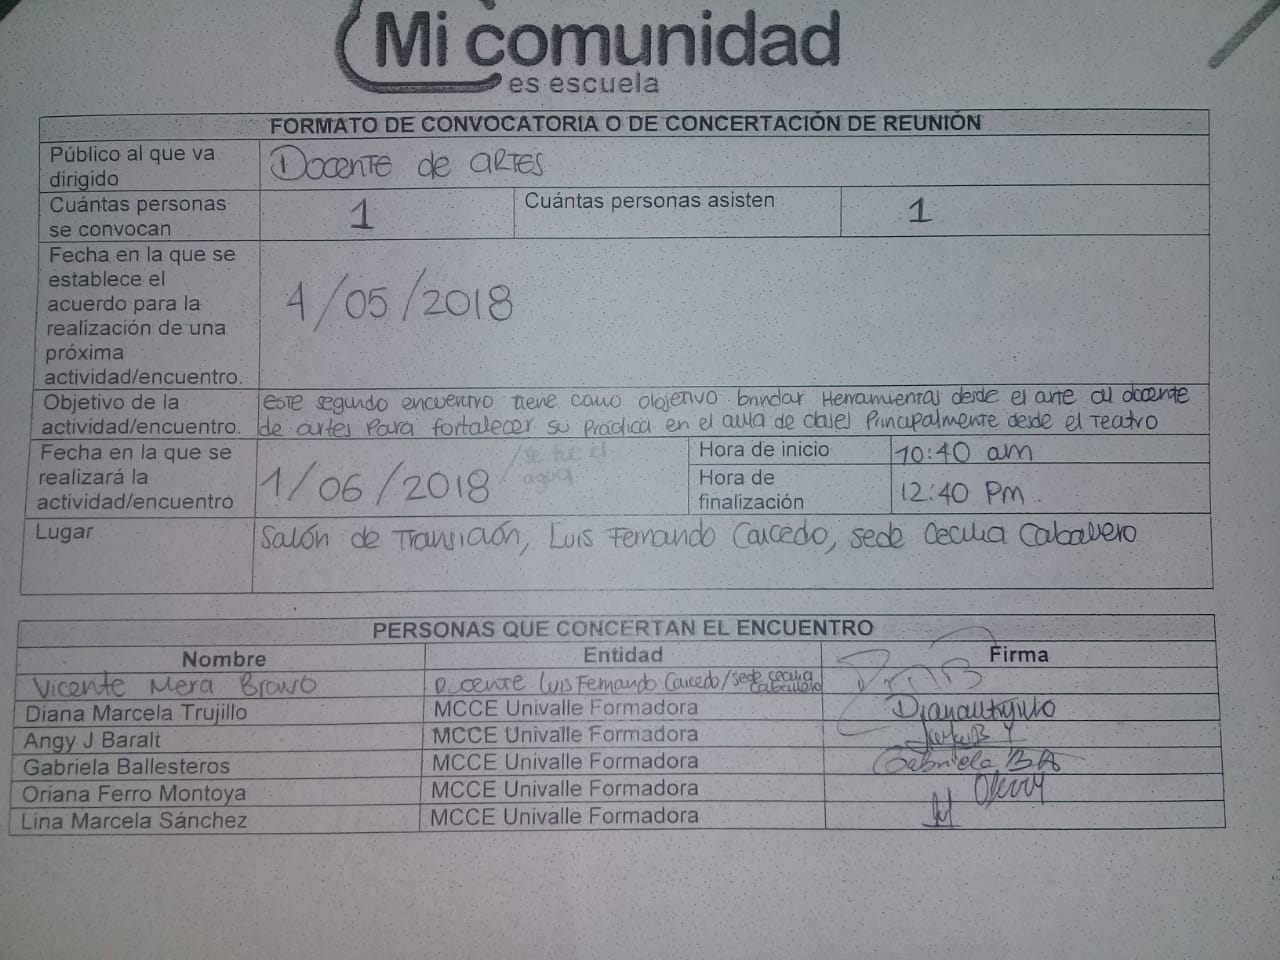 Mi comunidad
es escuela
FORMATO DE CONVOCATORIA O DE CONCERTACIÓN DE REUNIÓN
Público al que va
dirigido
Docente de artes
Cuántas personas
se convocan
1
Cuántas personas asisten
1
Fecha en la que se
establece el
acuerdo para la
realización de una
próxima
actividad/encuentro.
4/05/2018
Objetivo de la
actividad/encuentro.
Este segundo encuentro tiene como objetivo brindar Herramientas desde el arte al docente
de artes Para fortalecer su práctica en el aula de clases Principalmente desde el Teatro
Fecha en la que se
realizará la
actividad/encuentro
1/06/2018
/se fue el
agua
Hora de inicio
10:40 am
Hora de
finalización
12:40 Pm
Lugar
Salón de Transición, Luis Fernando Caicedo, sede Cecilia Caballero
PERSONAS QUE CONCERTAN EL ENCUENTRO
Nombre Entidad Firma
Vicente Mera Bravo Docente Luis Fernando Caicedo/sede cecilia caballero
Diana Marcela Trujillo MCCE Univalle Formadora
Angy J Baralt MCCE Univalle Formadora
Gabriela Ballesteros MCCE Univalle Formadora Gabriela BA
Oriana Ferro Montoya MCCE Univalle Formadora
Lina Marcela Sánchez MCCE Univalle Formadora